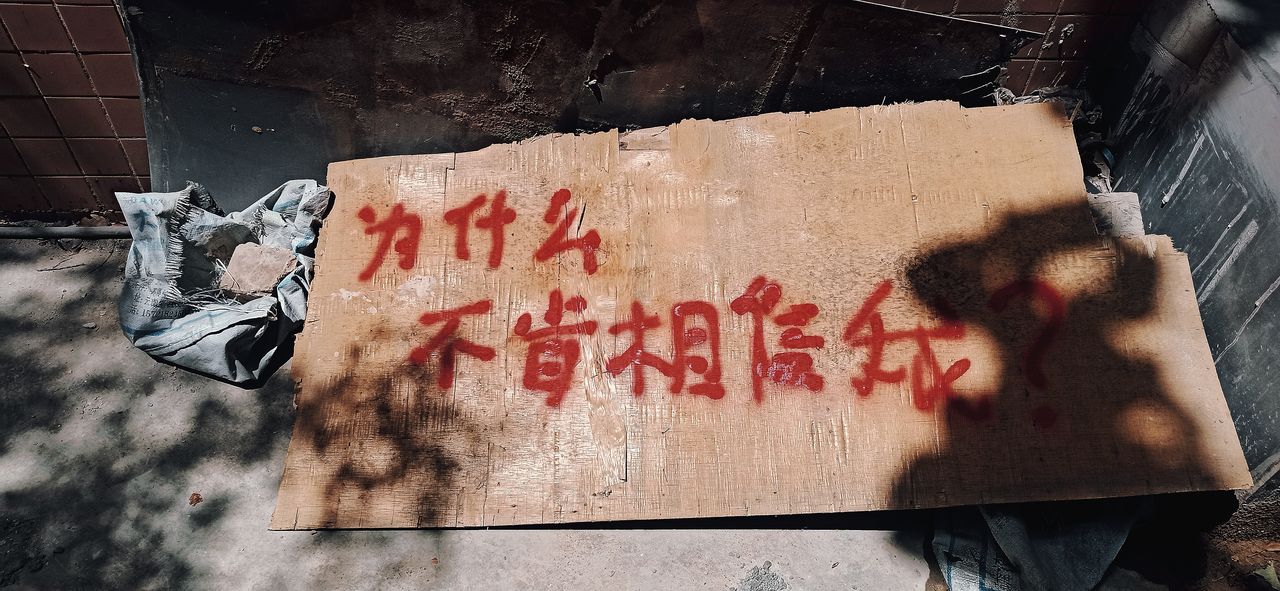 为什么
不肯相信我？